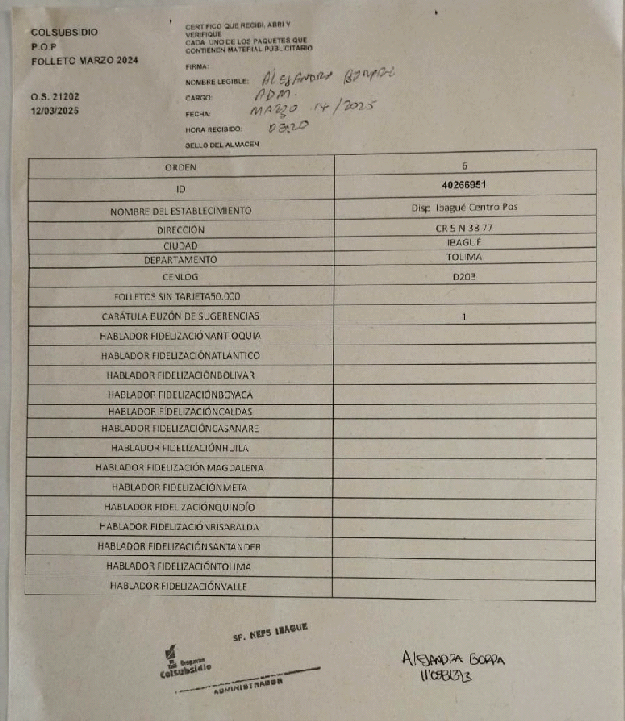 COLSUBSIDIO
P.O.P
FOLLETO MARZO 2024
O.S. 21202
12/03/2025
CERTIFICO QUE RECIBI, ABRI Y
VERIFIQUE
CADA UNO DE LOS PAQUETES QUE
CONTIENEN MATERIAL PUBLICITARIO
FIRMA:
NOMBRE LEGIBLE: ALEJANDRA
CARGO: ADM.
FECHA: MARZO 14/2025
HORA RECIBIDO:
SELLO DEL ALMACEN
ORDEN 6
ID 40266951
NOMBRE DEL ESTABLECIMIENTO Disp. Ibagué Centro Pos
DIRECCIÓN CR 5 N 38 77
CIUDAD IBAGUÉ
DEPARTAMENTO TOLIMA
CENLOG D203
FOLLETOS SIN TARJETA50.000
CARÁTULA BUZÓN DE SUGERENCIAS 1
HABLADOR FIDELIZACIÓNANTIOQUIA
HABLADOR FIDELIZACIÓNATLANTICO
HABLADOR FIDELIZACIÓNBOLIVAR
HABLADOR FIDELIZACIÓNBOYACA
HABLADOR FIDELIZACIÓNCALDAS
HABLADOR FIDELIZACIÓNCASANARE
HABLADOR FIDELIZACIÓNHUILA
HABLADOR FIDELIZACIÓN MAGDALENA
HABLADOR FIDELIZACIÓNMETA
HABLADOR FIDELIZACIÓNQUINDÍO
HABLADOR FIDELIZACIÓNRISARALDA
HABLADOR FIDELIZACIÓNSANTANDER
HABLADOR FIDELIZACIÓNTOLIMA
HABLADOR FIDELIZACIÓNVALLE
SF. NEPS IBAGUE
Droguería
Colsubsidio
ADMINISTRADOR
ALEJANDRA